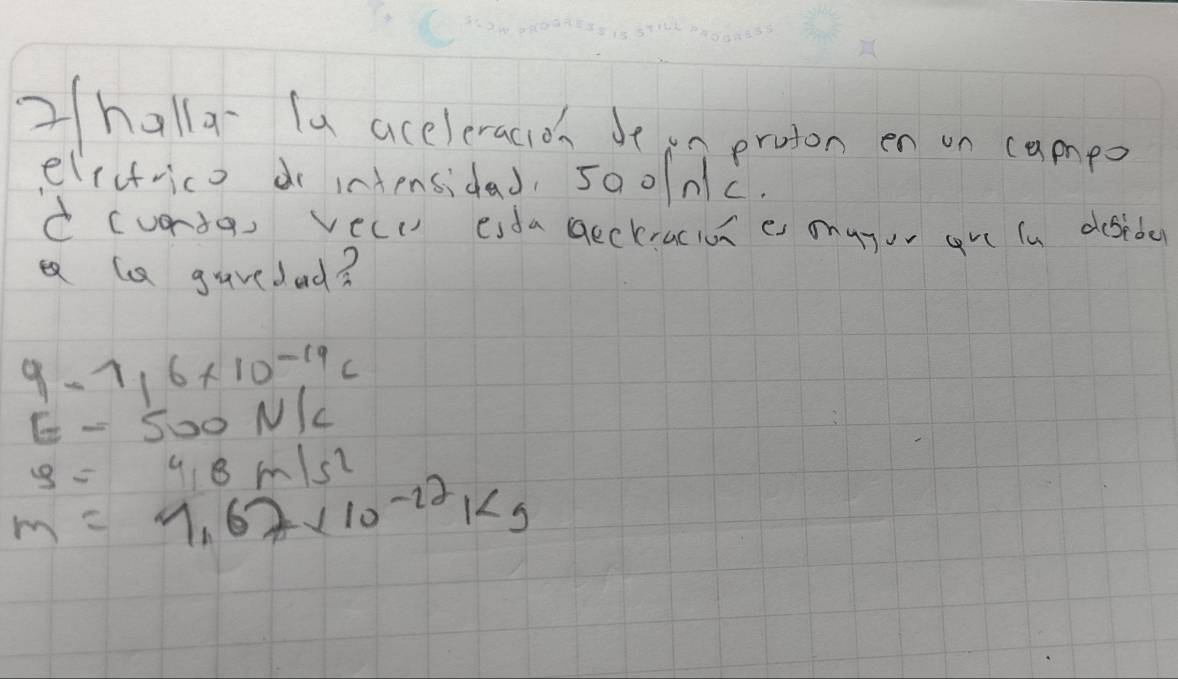 SLOW PROGRESS IS STILL PROGRESS
2/ hallar la aceleración de un proton en un campo
electrico de intensidad, 500/n/c.
¿ cuantas veces esta aceleración es mayor que la debida
a la gravedad?
q = 1,6 x 10-19 c
E = 500 N/c
g = 9,8 m/s2
m = 1,67 x 10-27 Kg